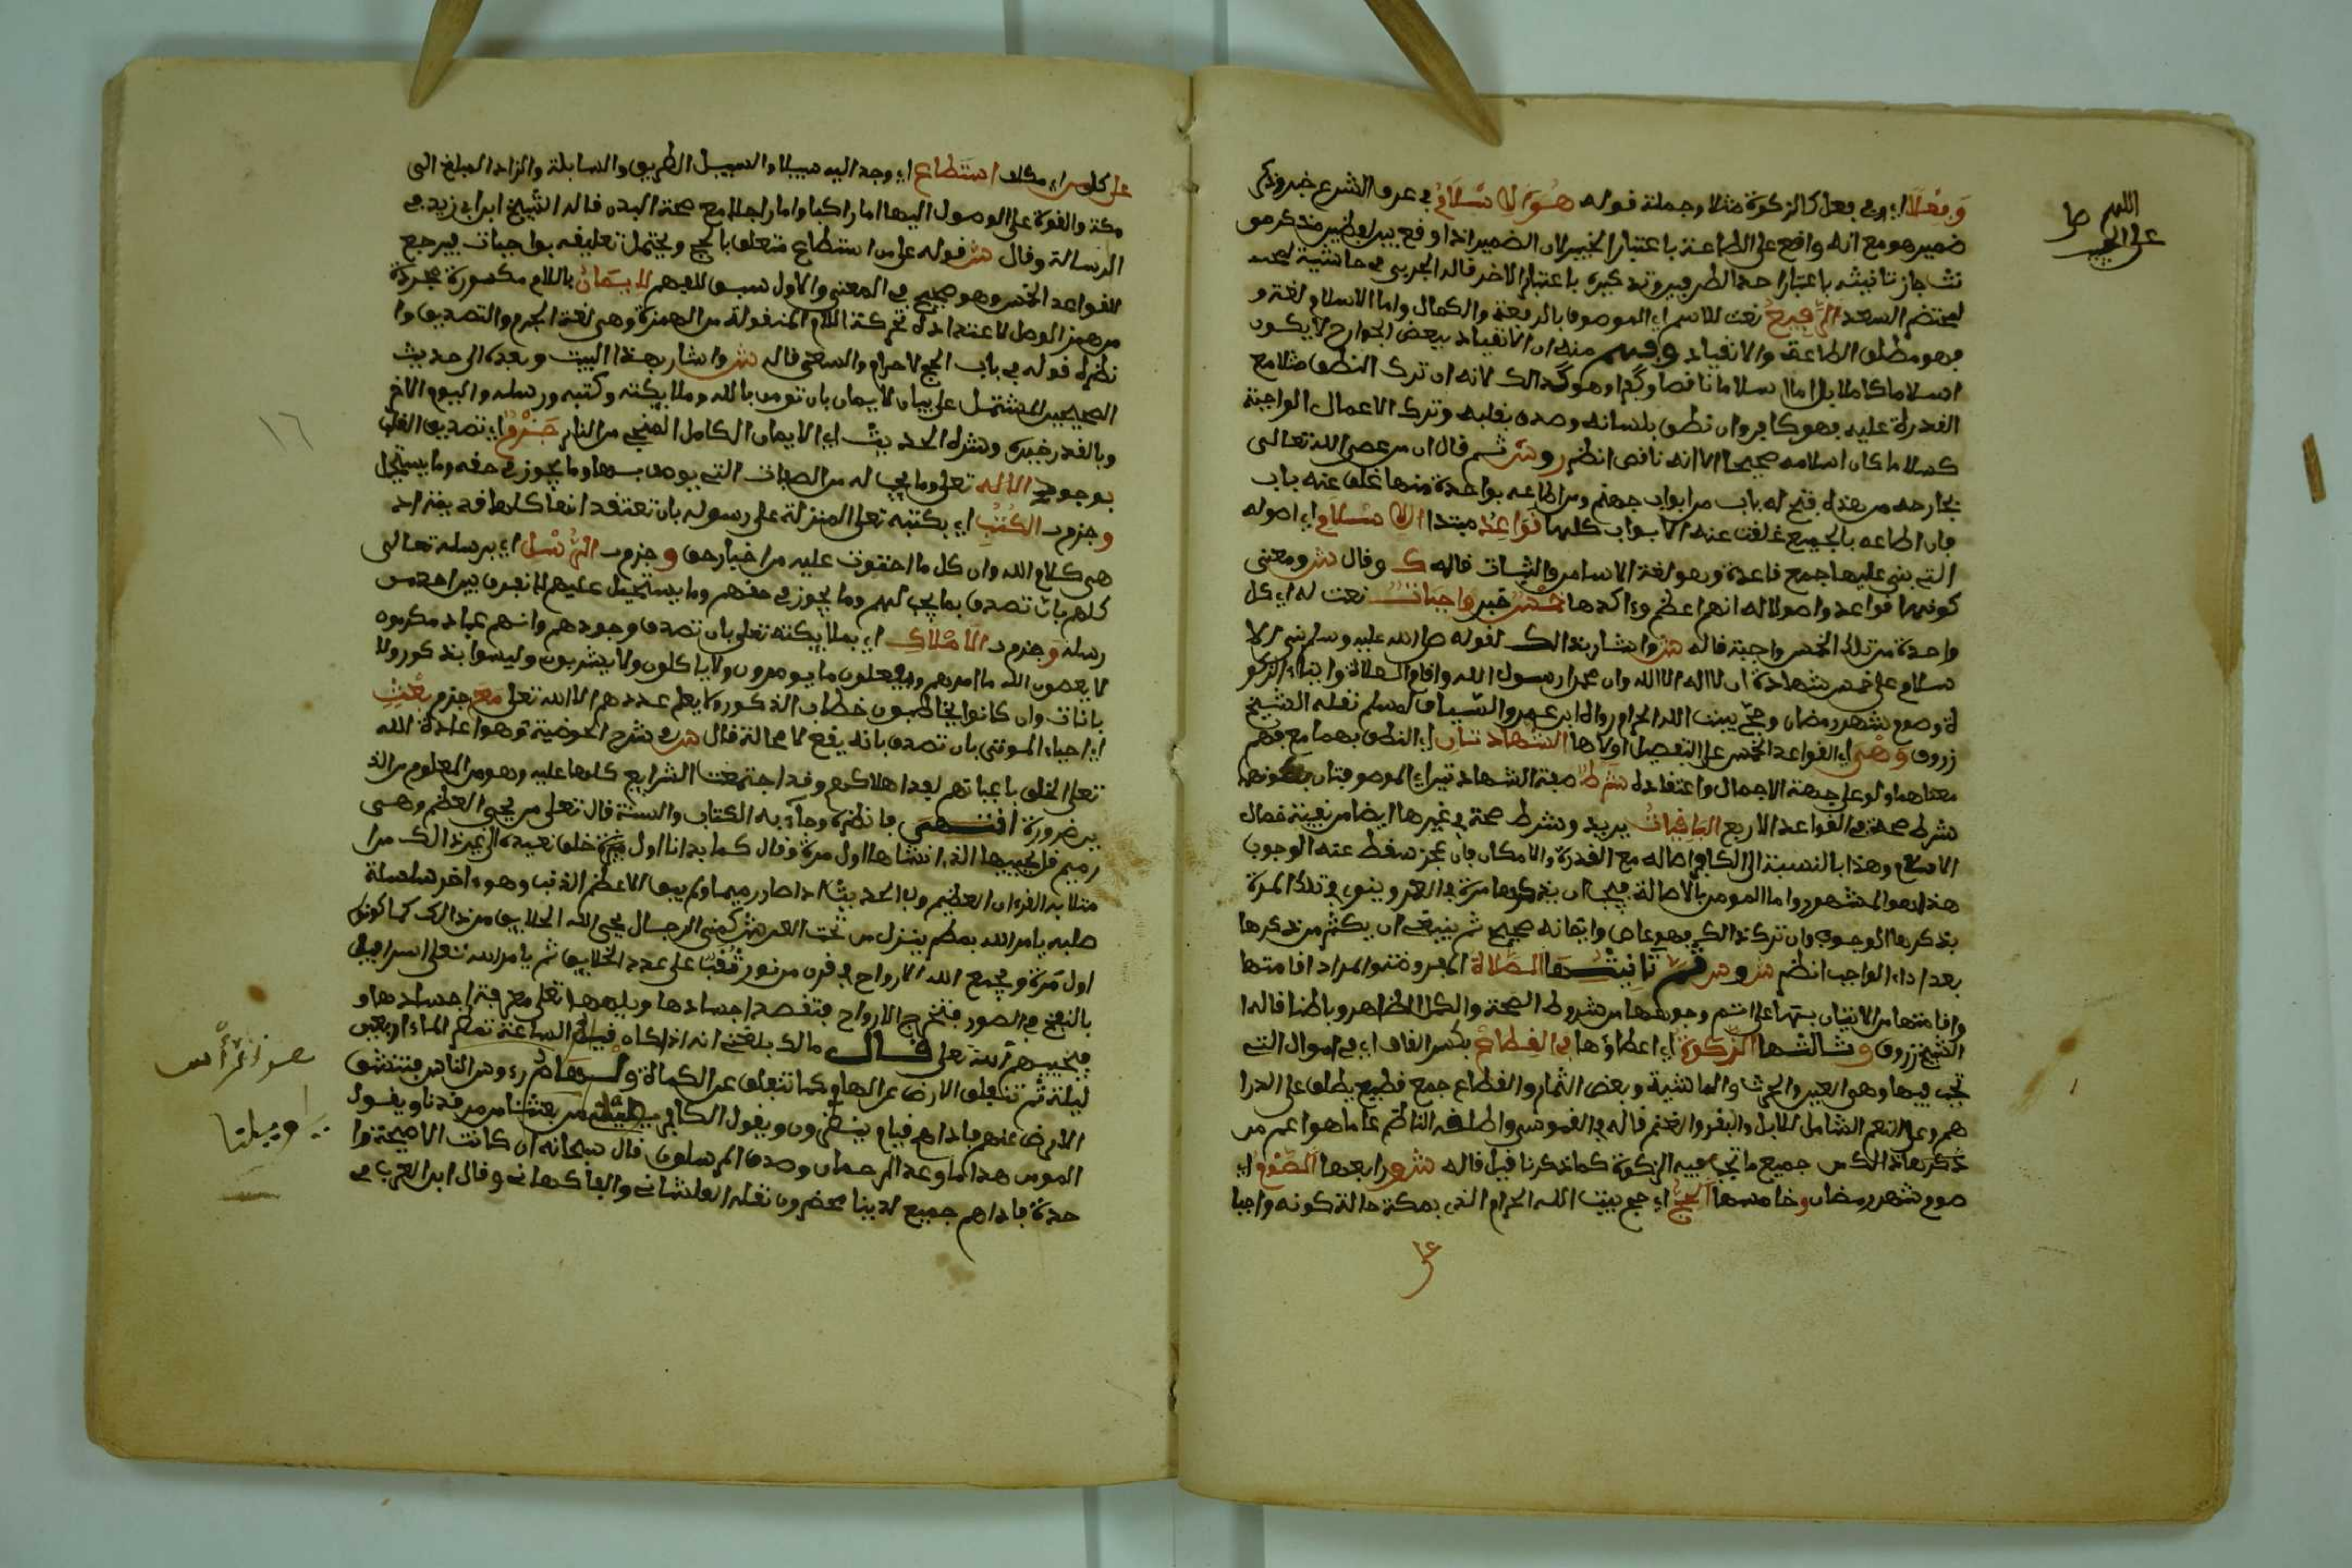 اللهم صل
على الحبيب
وَفِعْلًا اي وفي فعل كالزكوة مثلا وجملة قوله هُوَ الاِسْلَامُ في عرف الشرع خبر وذكر
ضمير هو مع انه واقع على الطاعة باعتبار الخبر لان الضمير اذا وقع بين لفظين مذكر ومو
نث جاز تانيثه باعتبار احد الطرفين وتذكيره باعتبار الاخر قاله الجربى في حاشية
لمختصر السعد الرَّفِيعُ نعت للاسم اي الموصوف بالرفعة والكمال واما الاسلام لغة و
فهو مطلق الطاعة والانقياد وفهم منه ان الانقياد ببعض الجوارح لا يكون
اسلاما كاملا بل اما اسلاما ناقصا وكذا وهو كذالك لانه ان ترك النطق مثلا مع
القدرة عليه فهو كافر وان نطق بلسانه وصدق بقلبه وترك الاعمال الواجبة
كسلا ما كان اسلامه صحيحا الا انه ناقص انظر و ش ثم قال ان من عصى الله تعالى
بجارحه من هذه فتح له باب من ابواب جهنم ومن اطاعه بواحدة منها غلق عنه باب
فان اطاعه بالجميع غلقت عنه الابواب كلها قَوَاعِدُ مبتدا الاِسْلَامِ اي اصوله
التي بني عليها جمع قاعدة وهو لغة الاساس والثبات قاله ك وقال ش ومعنى
كونها قواعد واصولا له انها اعظم واكدها خَمْسٌ خبر وَاجِبَاتٌ نعت له اي كل
واحدة من تلك الخمس واجبة قاله ش واشار بذالك لقوله صلى الله عليه وسلم بني الا
سلام على خمس شهادة ان لا اله الا الله وان محمدا رسول الله واقام الصلاة وايتاء الزكو
ة وصوم شهر رمضان وحج بيت الله الحرام رواه ابن عمر والسياق لمسلم نقله الشيخ
زروق وَهِيَ اي القواعد الخمس على التفصيل اولاها الشَّهَادَتَانِ اي النطق بهما مع فهم
معناهما ولو على جهة الاجمال واعتقاده شَرْطُ صفة الشهادتين اي الموصوفتان بكونهما
شرط صحة في القواعد الاربع البَاقِيَاتُ يريد وشرط صحة في غيرها ايضا من بقية خصال
الاسلام وهذا بالنسبة الى الكافر اصالة مع القدرة والامكان فان عجز سقط عنه الوجوب
هذا هو المشهور واما المومن بالاصالة فيجب ان يذكرها مرة في العمر وينوي في تلك المرة
بذكرها الوجوب وان ترك ذالك فهو عاص وايمانه صحيح ثم ينبغي ان يكثر من ذكرها
بعد اداء الواجب انظر ش و ثُمَّ ثانيتها الصَّلَاةُ المفروضة والمراد اقامتها
واقامتها من الاتيان بها على اتم وجوهها من شروط الصحة والكمال الظاهر وباطنا قاله ا
الشيخ زروق وثالثتها الزَّكَوةُ اي اعطاؤها فِي القِطَاعِ بكسر القاف اي في اموال التي
تجب فيها وهي العين والحرث والماشية وبعض الثمار والقطاع جمع قطيع يطلق على الدرا
هم وعلى النعم الشامل للابل والبقر والغنم قاله في القموس واطلقه الناظم على ما هو اعم من
ذكر هذا الكس جميع ما تجب فيه الزكوة كما ذكرنا قبل قاله ش ورابعها الصَّوْمُ اي
صوم شهر رمضان وخامسها الحَجُّ اي حج بيت الله الحرام الذي بمكة حالة كونه واجبا
على كل من اي مكلف اسْتَطَاعَ اي وجد اليه سبيلا والسبيل الطريق والسابلة والزاد المبلغ الى
مكة والقوة على الوصول اليها اما راكبا واما راجلا مع صحة البدن قاله الشيخ ابن ابي زيد في
الرسالة وقال ش قوله على من استطاع متعلق بالحج ويحتمل تعليقه بواجبات فيرجع
للقواعد الخمس وهو صحيح في المعنى والاول سبق للفهم للايمَانُ باللام مكسورة مجردة
من همز الوصل لاعتداده بحركة اللام المنقولة من الهمزة وهي لغة الجزم والتصديق وا
نظر قوله في باب الحج لاحرام والسعى قاله ش واشار بهذا البيت وبعده الى حديث
الصحيحين المشتمل على بيان الايمان بان تومن بالله وملايكته وكتبه ورسله واليوم الاخر
وبالقدر خيره وشره الحديث اي الايمان الكامل المنجي من النار جَزْمٌ اي تصديق القلب
بوجود الاِلَهِ تعلى وما يجب له من الصفات التي يوصف بها وما يجوز في حقه وما يستحيل
وجزم ب الكُتْبِ اي بكتبه تعلى المنزلة على رسوله بان تعتقد انها كلها
هي كلام الله وان كل ما احتوت عليه من اخبار حق و جزم ب الرُّسْلِ اي برسله تعالى
كلهم بان تصدق بما يجب لهم وما يجوز في حقهم وما يستحيل عليهم لا نفرق بين احد من
رسله و جزم ب الاَمْلَاكِ اي بملايكته تعلى بان تصدق وجودهم وانهم عباد مكرمون
لا يعصون الله ما امرهم ويفعلون ما يومرون ولا ياكلون ولا يشربون وليسوا بذكور ولا
باناث وان كانوا يخاطبون خطاب الذكور لا يعلم عددهم الا الله تعلى مَعَ جزم بَعْثٍ
اي احياء الموتى بان تصدق بانه يقع لا محالة قال ش في شرح الحوضية وهو اعادة الله
تعلى الخلق باعيانهم بعد اهلاكهم وقد اجتمعت الشرايع كلها عليه وهو من المعلوم من الد
ين ضرورة انتهى فانظره وجاء به الكتاب والسنة قال تعلى من يحيي العظم وهي
رميم قل يحييها الذي انشاها اول مرة وقال كما بدانا اول خلق نعيده الى غير ذالك من ا
مثلا به القرءان العظيم وفي الحديث اذا صار رميما ولم يبق الا عظم الذنب وهو ءاخر سلسلة
صلبه يامر الله بمطر ينزل من تحت العرش كمني الرجال يحيى الله الخلايق من ذالك كما كونهم
اول مرة ويجمع الله الارواح في قرن من نور ثُقُبًا على عدد الخلايق ثم يامر الله تعلى اسرافيل
بالنفخ في الصور فتخرج الارواح فتقصد اجسادها ويلهمها تعلى معرفة اجسادها و
فيحييهم الله تعلى قال مالك بلغني انه اذا كان قيام الساعة تمطر السماء اربعين
ليلة ثم تنفلق الارض عن الهام كما تنفلق عن الكماة و رءوس الناس فتنشق
الارض عنهم فاذا هم قيام ينظرون ويقول الكافر يويلنا من بعثنا من مرقدنا ويقول
المومن هذا ما وعد الرحمان وصدق المرسلون قال سبحانه ان كانت الا صيحة وا
حدة فاذا هم جميع لدينا محضرون نقله القلشاني والفاكهاني وقال ابن العربي في
١٦